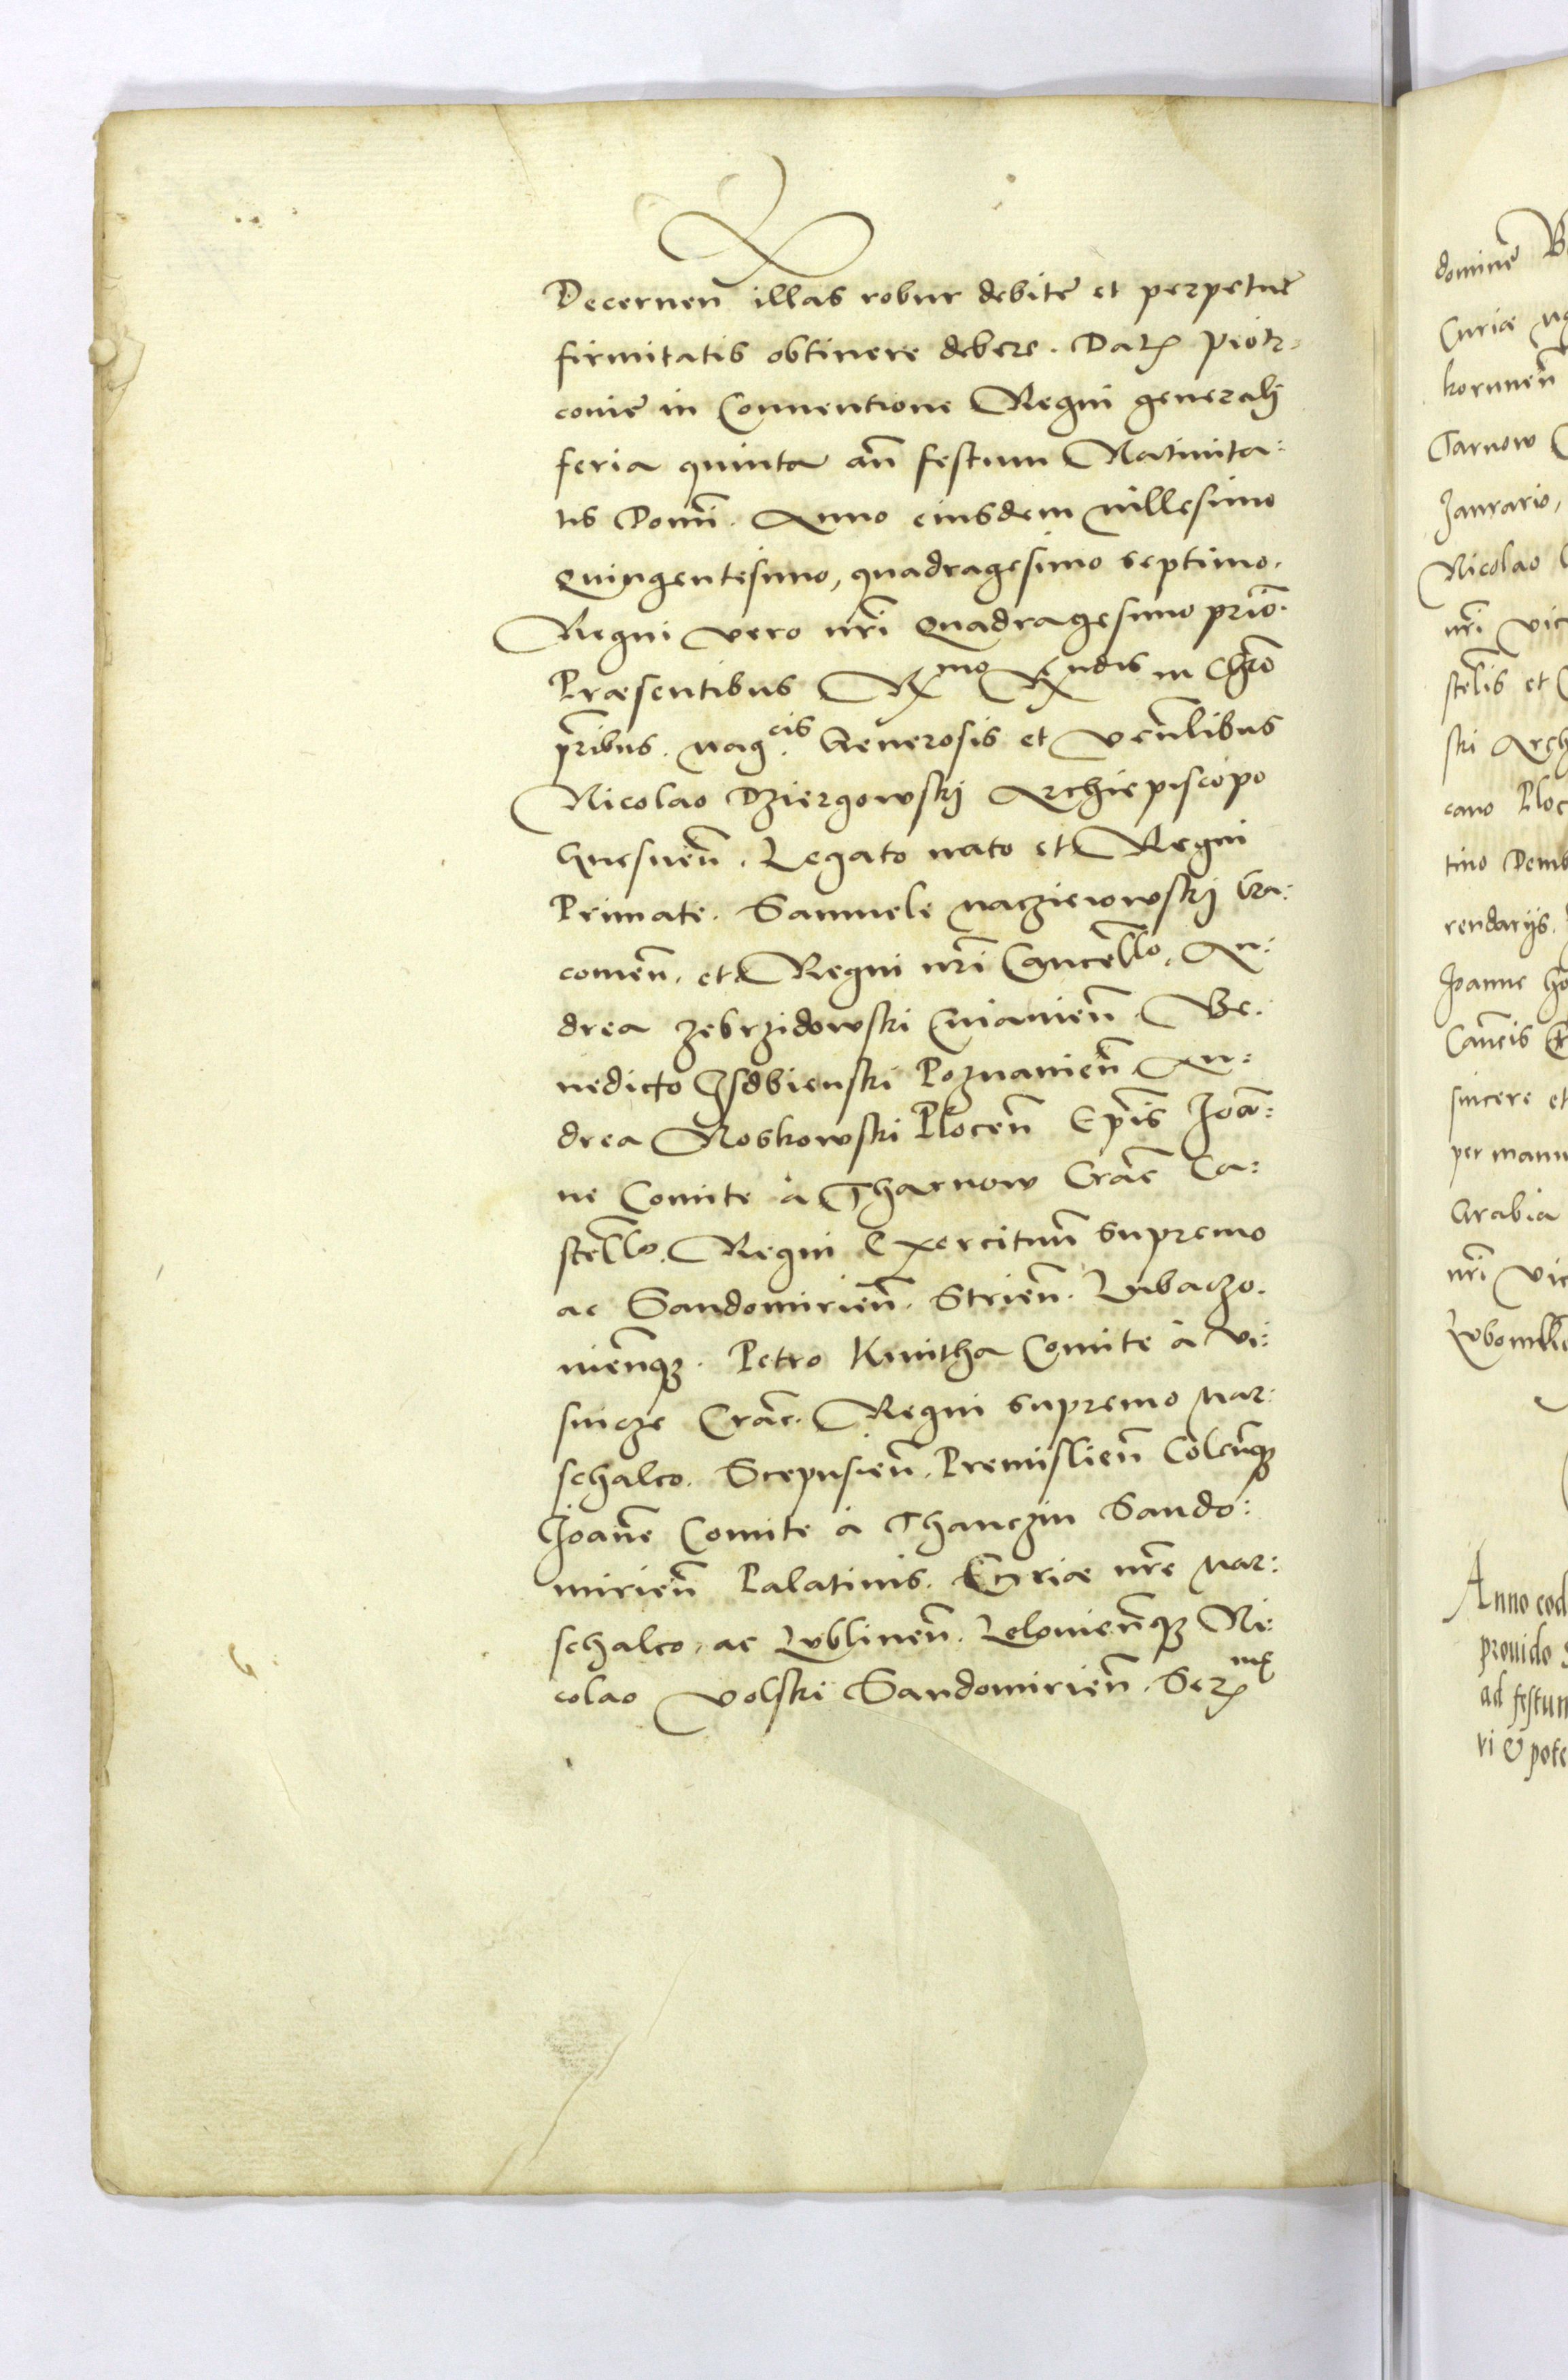 Decernen̄ illas robur debite et perpetue
firmitatis obtinere debere. Datꝫ Piotr-
couie in Conuentione Regni generali
feria quinta an̄ festum Natiuita:
tis Domī. Anno eiusdem millesimo
Quingentesimo, quadragesimo septimo.
Regni vero nr̄i Quadragesimo primo.
Præsentibus Rmo Rndis in Chrō
pr̄ibus. Magcis Generosis et Venlibus
Nicolao Dziergowskj Archiepiscopo
Gnesnen̄. Legato nato et Regni
Primate. Samuele Macziewowskj Cra:
couien̄. et Regni nr̄i Cancello. An:
drea Zebrzidowski Cuiauien̄. Be:
nedicto Isdbienski Poznanien̄ An:
drea Noskowski Plocen̄ Ep̄is Joan̄:
ne Comite à Tharnow Crac̄ Ca:
stello. Regni Exercituum supremo
ac Sandomirien̄. Strien̄. Lubaczo.
uien̄qꝫ. Petro Kmitha Comite à Vi:
snicze Crac̄. Regni supremo Mar:
schalco. Scepusien̄. Premislien̄ Colen̄qꝫ
Joan̄e Comite à Thanczin Sando:
mirien̄ Palatinis. Curiæ nr̄e Mar:
schalco, ac Lublinen̄. Lelouien̄qꝫ Ni:
colao Volski Sandomirien̄. Serꝫ
domine
Curiæ
korunen̄
Tarnow
Januario,
Nicolao
nr̄i vic
stel̄is et
ski Arch
cano Ploc
tino Demb
rendarijs.
Joanne
sincere et
per manu
Grabia
nr̄i vic
Anno eod
prouido
ad festum
vi & pote